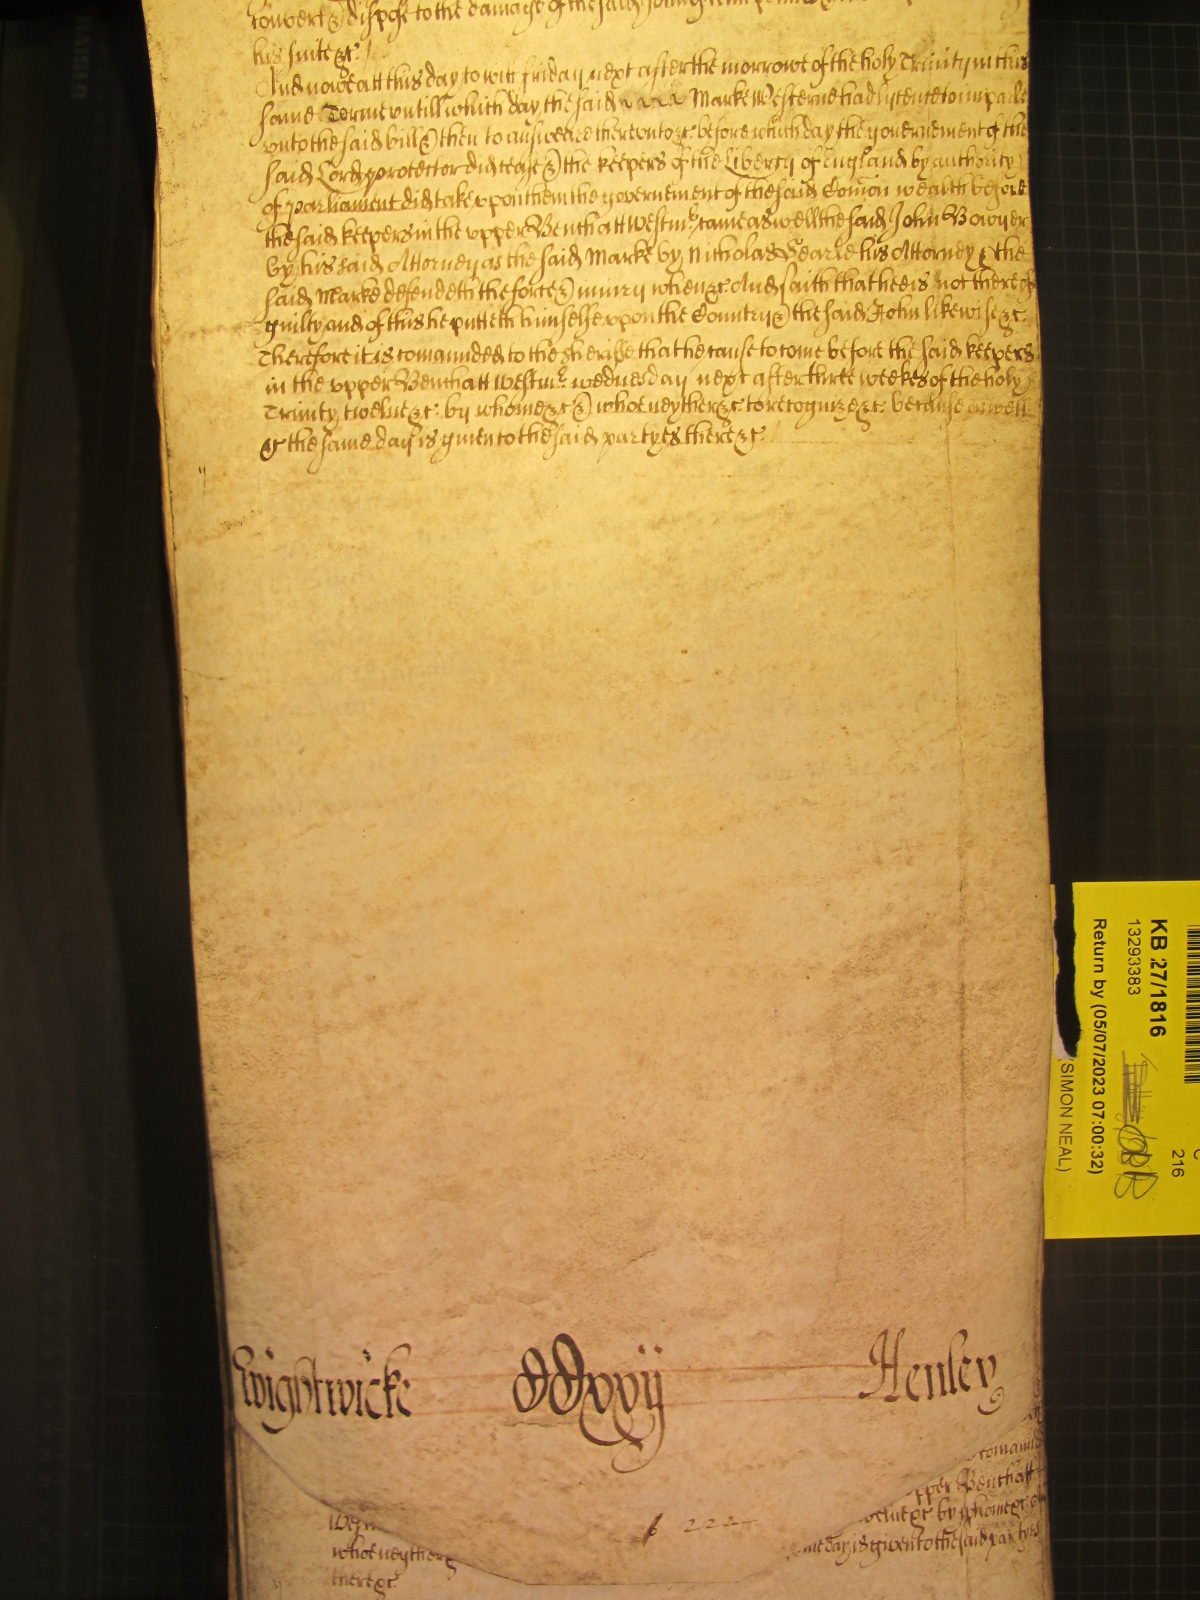 convert & dispose to the damage of the said John
his suite &c
And nowe att this day to witt friday next after the morrowe of the holy Trinity in this
same Terme untill which day the said Marke Westerne had lycence to imparle
unto the said bill & then to answere thereunto &c before which day the governement of the
said Lord protector did cease & the keepers of the Liberty of England by authority
of parliament did take upon them the governement of the said Comon wealth before
the said keepers in the upper Bench att Westmr came aswell the said John Bowyer
by his said Attorney as the said Marke by Nicholas Searle his Attorney & the
said Marke defendeth the force & iniury when &c And saith that hee is not thereof
guilty and of this he putteth himselfe upon the Country & the said John likewise &c
Therefore it is comaunded to the sheriffe that he cause to come before the said keepers
in the upper Bench att Westmr wednesday next after three weekes of the holy
Trinity twelve &c by whome &c & who neyther &c to recognize &c because aswell
&c the same day is given to the said partyes there &c
Wightwicke
xxvij
Henley
comaun
upper Bench att
twelve &c by whome &c
who neyther
me day is given to the said partyes
there &c
KB 27/1816
13293383
Return by (05/07/2023 07:00:32)
(SIMON NEAL)
216